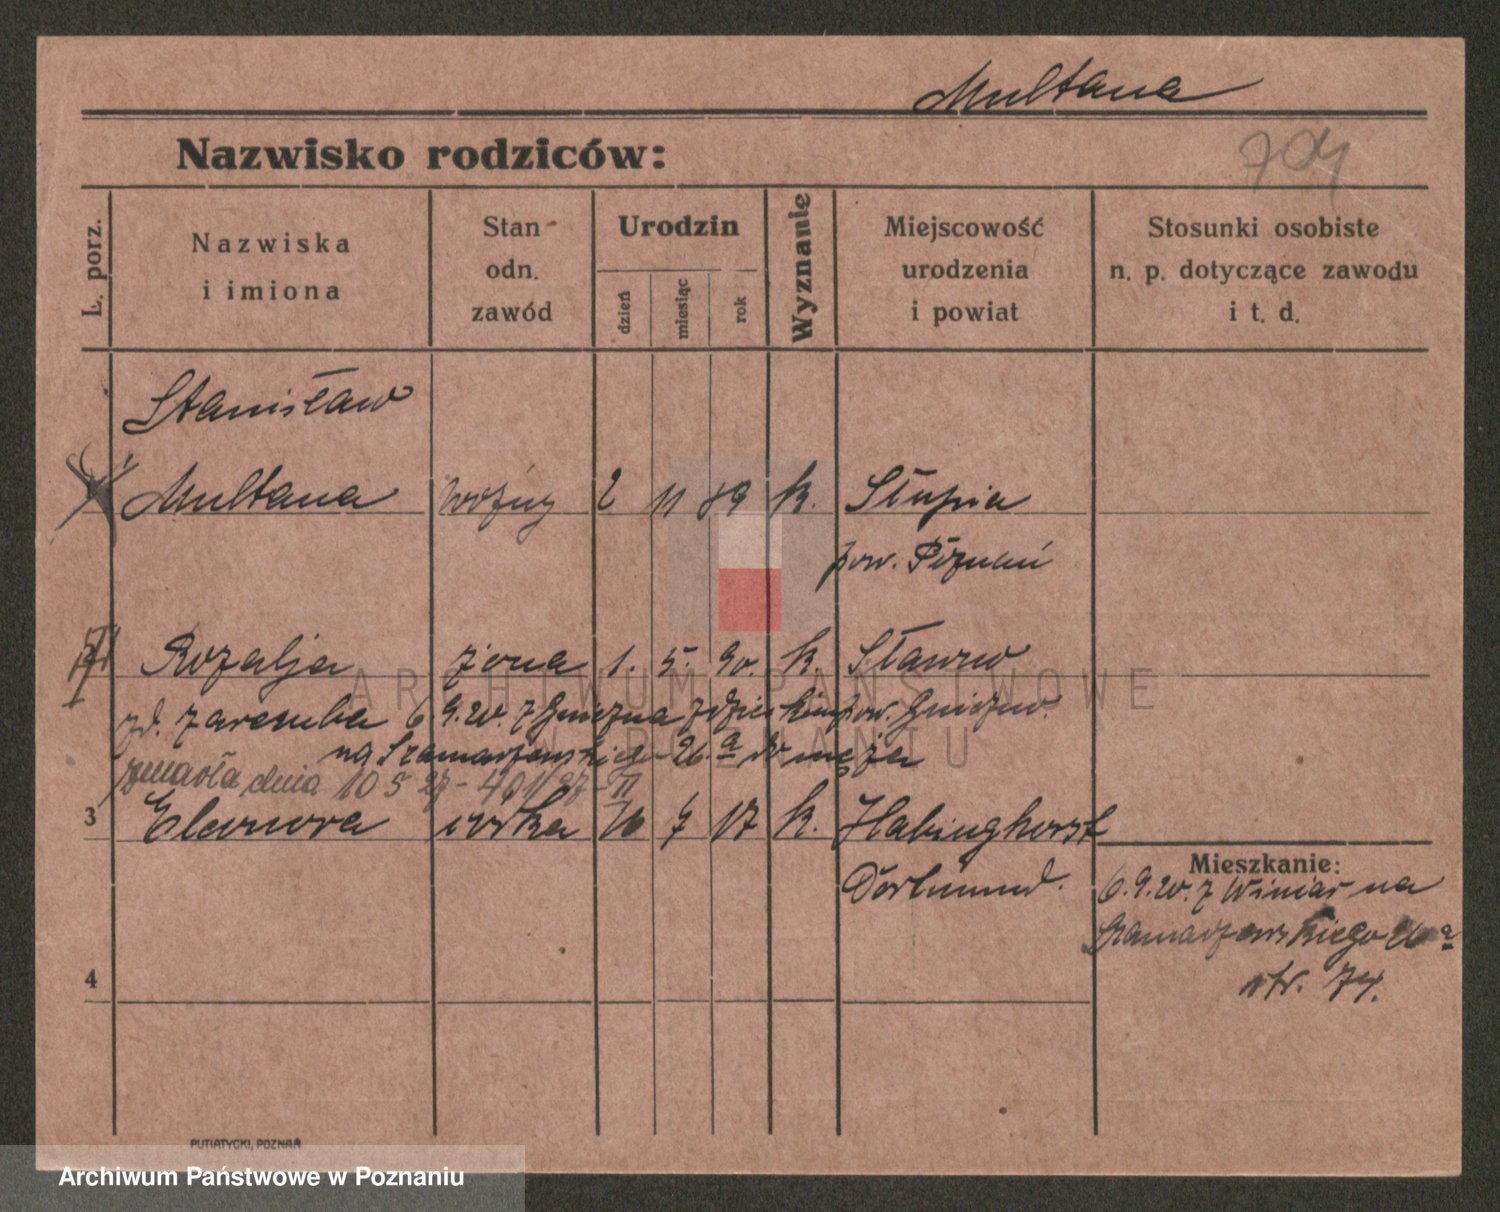 Multana
Nazwisko rodziców:
704
L. porz.
Nazwiska
i imiona
Stan
odn.
zawód
Urodzin
dzień
miesiąc
rok
Wyznanie
Miejscowość
urodzenia
i powiat
Stosunki osobiste
n. p. dotyczące zawodu
i t. d.
Stanisław
Multana woźny 2 11 89 k. Słupia
pow. Poznań
Rozalja żona 1. 5. 90. k. Sławno
zd. Zaremba 6 9.20. z Gniezna pow. Gniezno.
na Szamarzewskiego 26.a do męża
zmarła dnia 10 5 27 - 401/27 - II
3 Eleonora córka 7 17 k. Habinghorst
Dortmund.
Mieszkanie:
6.9.20. z Winiar na
Szamarzewskiego a
str. 74.
4
PUTIATYCKI, POZNAŃ
ARCHIWUM PAŃSTWOWE
W POZNANIU
Archiwum Państwowe w Poznaniu